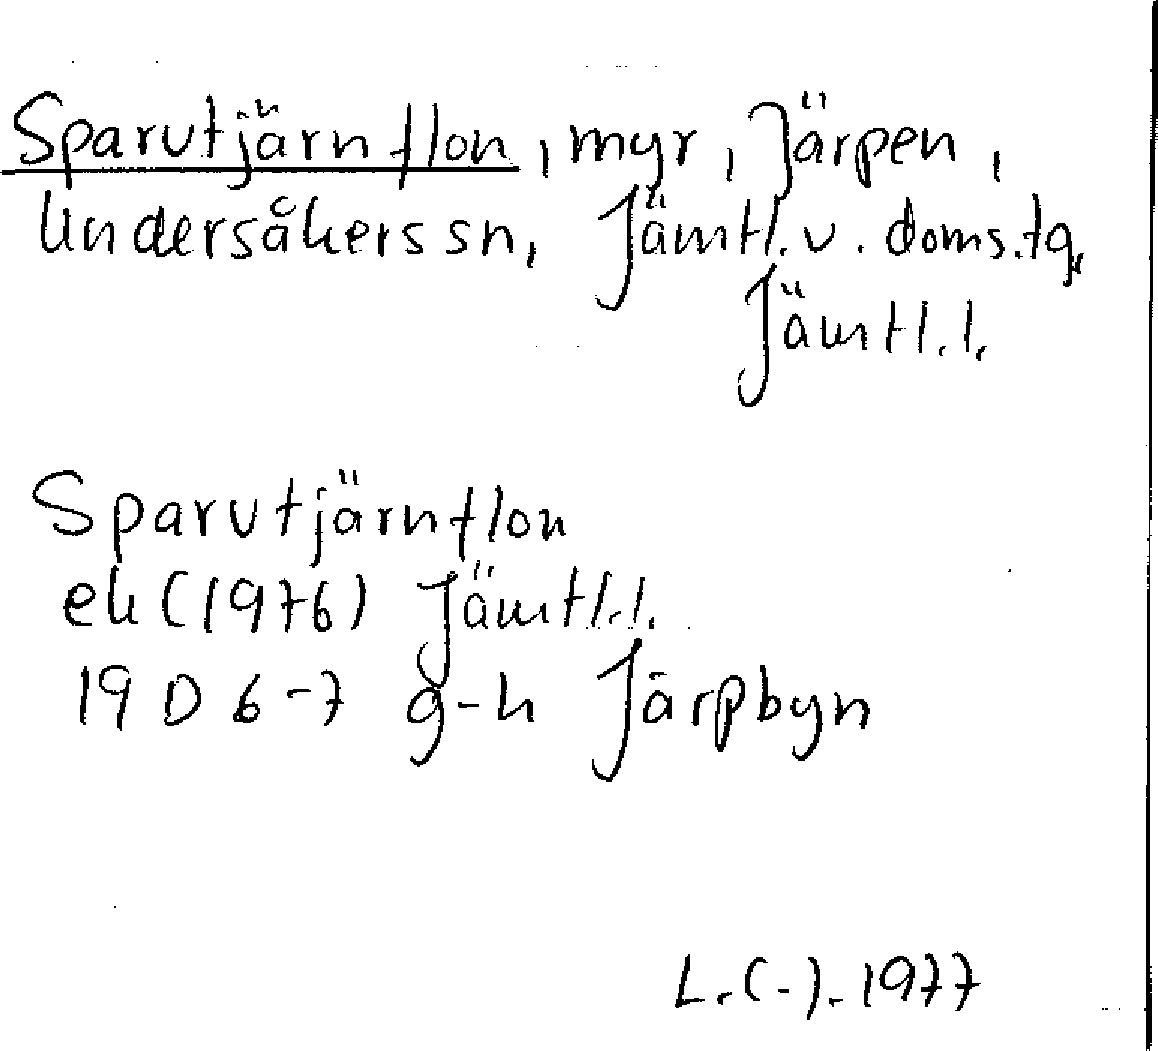 Sparutjärnflon, myr, Järpen,
Undersåkers sn, Jämtl. v. doms.tg,
Jämtl.l.
Sparutjärnflon
ek (1976) Jämtl.l.
19 D 6-7 g-h Järpbyn
L.(-).1977